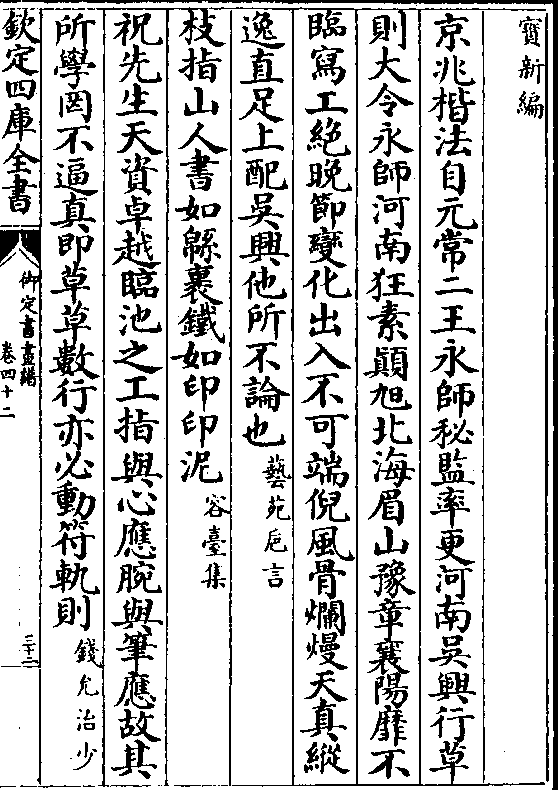 寳新編
京兆楷法自元常二王永師秘監率更河南吳興行草
則大令永師河南狂素顛旭北海眉山豫章襄陽靡不
臨寫工絶晚節變化出入不可端倪風骨爛熳天真縱
逸直足上配吳興他所不論也 藝苑巵言
枝指山人書如緜裹鐵如印印泥 容臺集
祝先生天資卓越臨池之工指與心應腕與筆應故其
所學罔不逼真即草草數行亦必動符軌則 錢允治少
欽定四庫全書
御定書畫譜
卷四十二
三十二